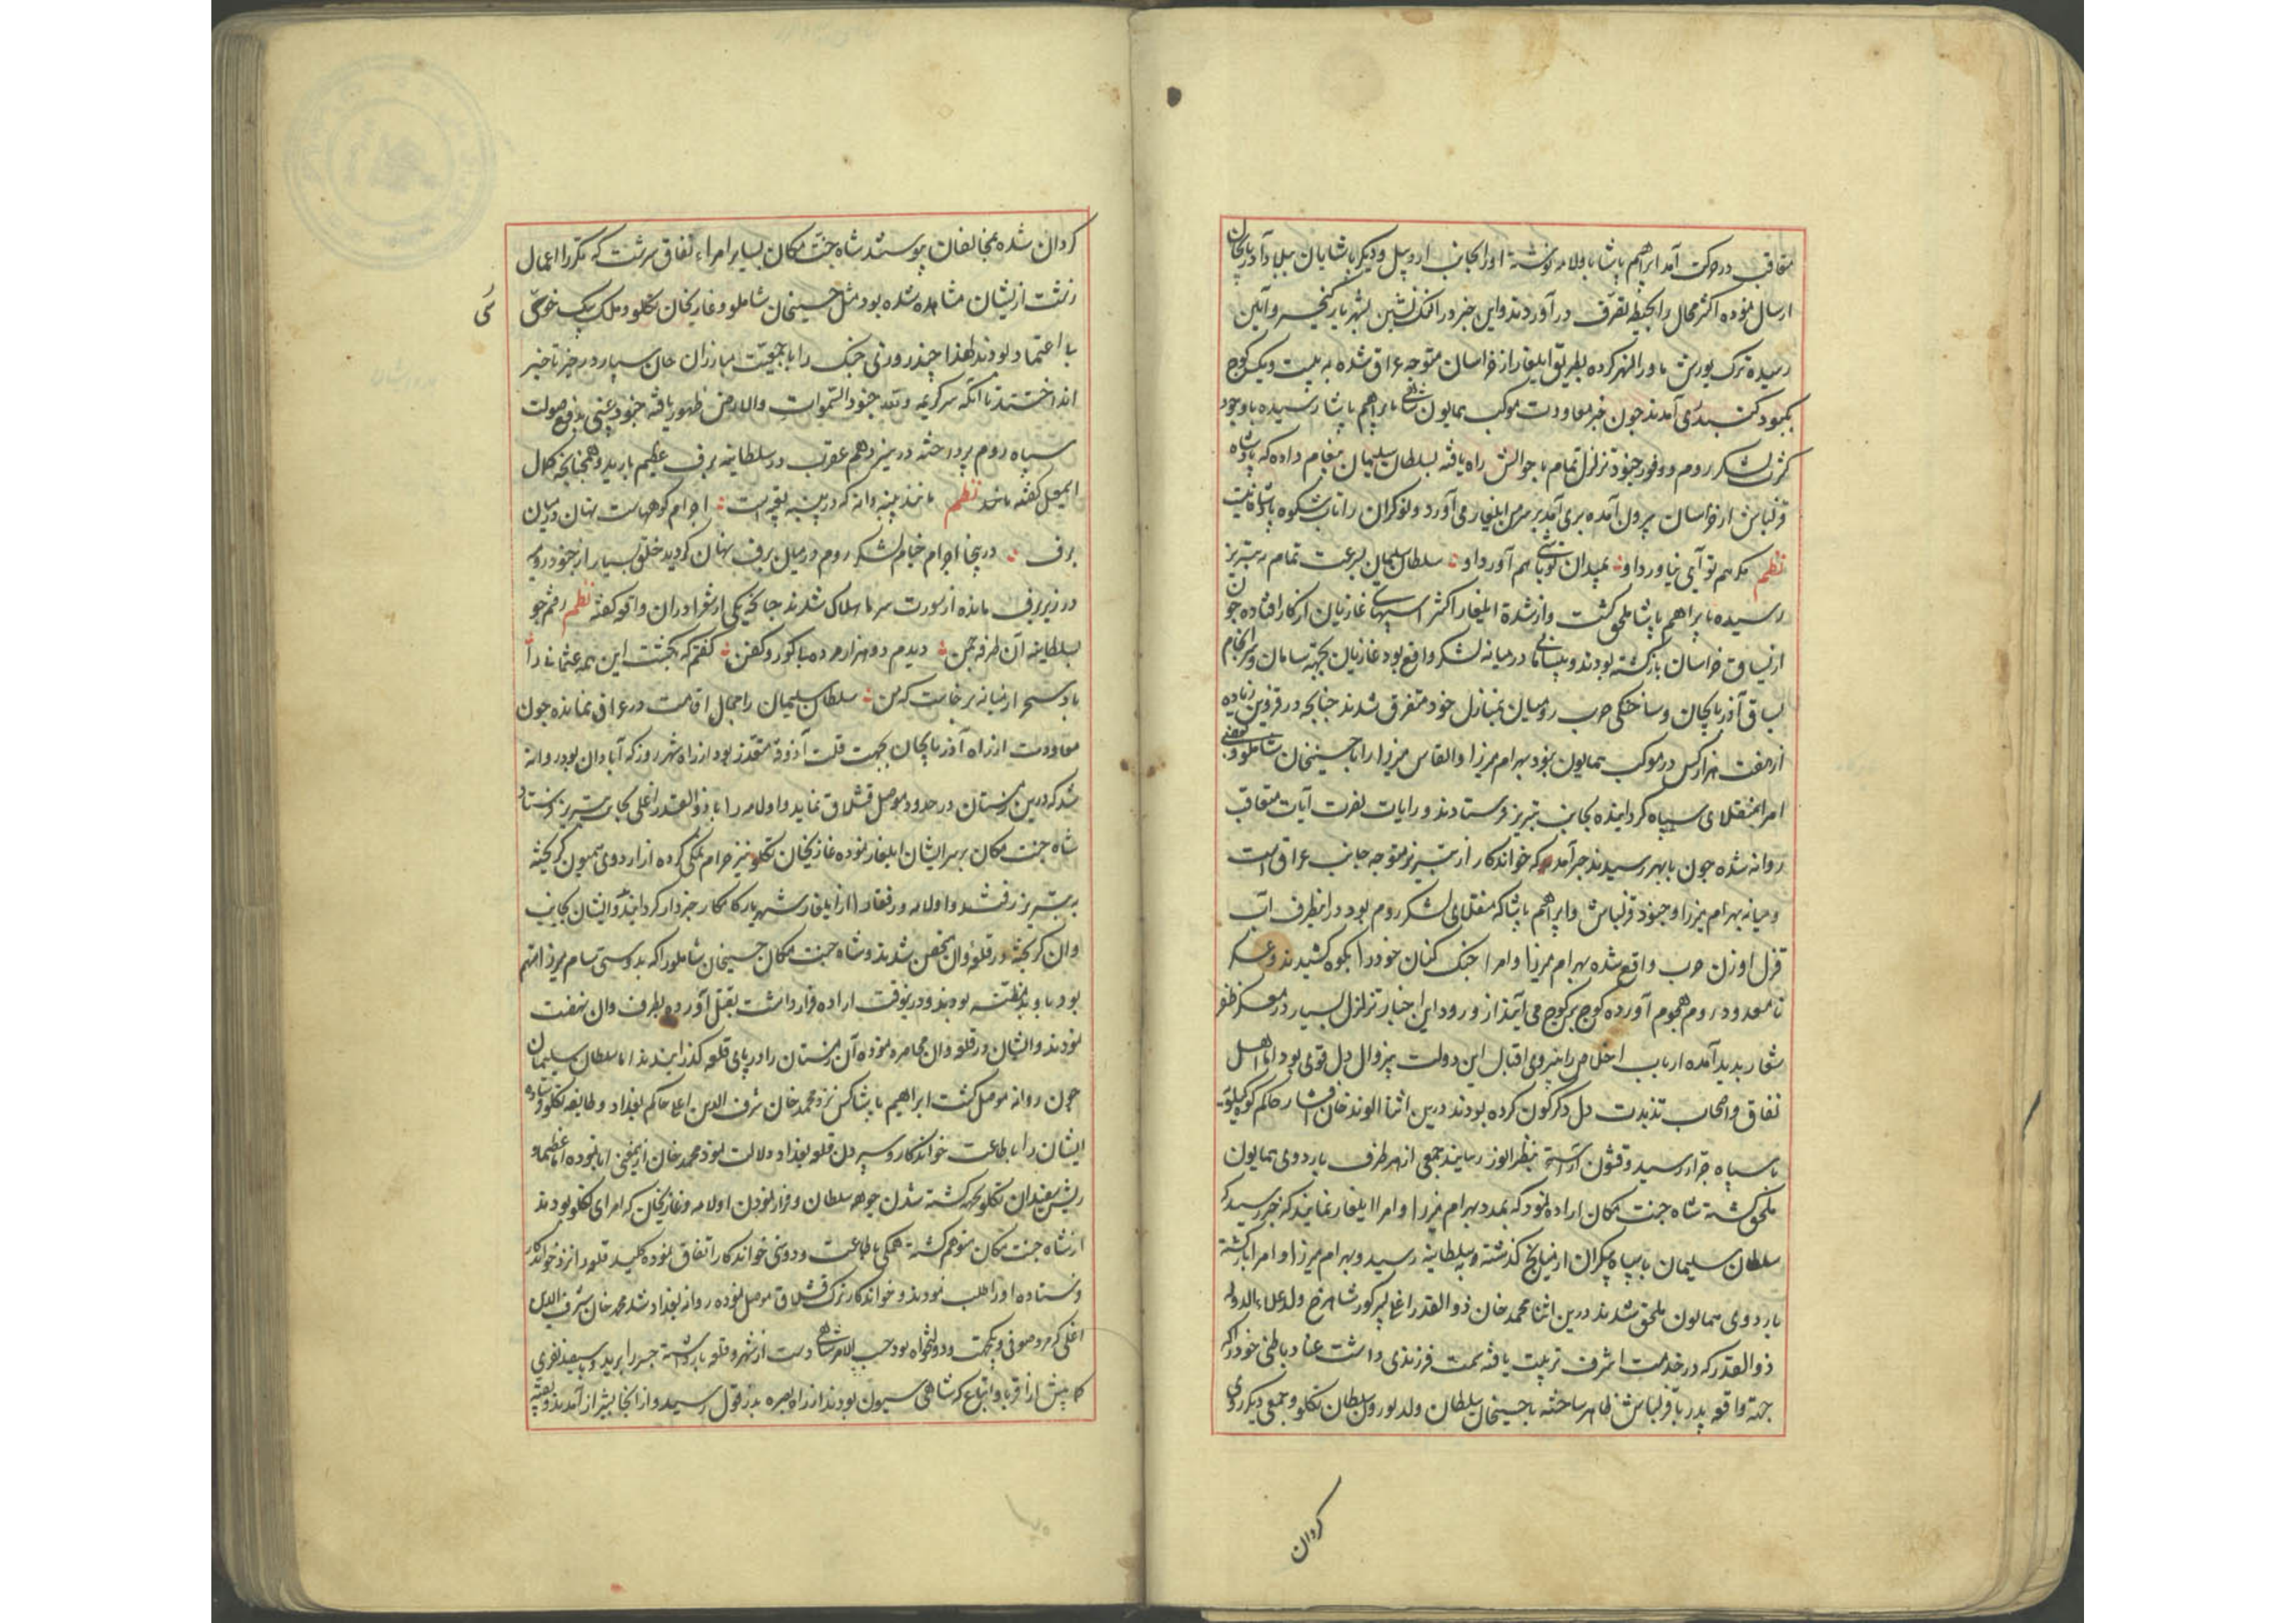 متعاقب در حرکت آمد ابراهیم پاشا با ولامه نوشته او را بجانب اردبیل و دیگر پاشایان ببلاد آذربایجان
ارسال نموده اکثر محال را بحیطه تصرف در آوردند و این خبر در النک نشین بشهریار کیخسرو آیین
رسیده ترک یورش ماوراالنهر کرده بطریق ایلغار از خراسان متوجه عراق شده به بیست و یک کوج
بکبود کنبد ری آمدند چون خبر معاودت موکب همایون شاهی بابراهیم پاشا رسیده باوجود
کثرت لشکر روم و وفور جنود تزلزل تمام باحوالش راه یافته بسلطان سلیمان پیغام داده که پادشاه
قزلباش از خراسان بیرون آمده بری آمد بر سر من ایلغار می آورد و نوکران را تاب شکوه پادشاه نیست
نظم مکر هم تو آیی نیاورد او بمیدان تو باشی هم آورد او سلطان سلیمان بسرعت تمام به تبریز
رسیده بابراهیم پاشا ملحق کشت و از شدة ایلغار اکثر اسپهای غازیان از کار افتاده چون
از یساق خراسان بازکشته بودند و بیسامانی در میانه لشکر واقع بود غازیان بجهته سامان و سرانجام
یساق آذربایجان و ساختکی حرب رومیان بمنازل خود متفرق شدند چنانچه در قزوین زیاده
از هفت هزار کس در موکب همایون نبود بهرام میرزا و القاس میرزا را با حسینخان شاملو و بعضی
امرا منقلای سپاه کردانیده بجانب تبریز فرستادند و رایات نصرت آیات متعاقب
روانه شده چون بابهر رسیدند خبر آمد که خواندکار از تبریز متوجه جانب عراق است
و میانه بهرام میرزا و جنود قزلباش و ابراهیم پاشا که منقلای لشکر روم بود در انطرف آب
قزل اوزن حرب واقع شده بهرام میرزا و امرا جنک کنان خود را بکوه کشیدند و عسکر
نامعدود روم هجوم آورده کوج بر کوج می آیند از ورود این اخبار تزلزل بسیار در معسکر ظفر
شعار پدید آمده ارباب اخلاص را بنیروی اقبال این دولت بیزوال دل قوی بود اما اهل
نفاق و اصحاب تذبذب دل دکرکون کرده بودند درین اثنا الوند خان افشار حاکم کوه کیلویه
با سپاه جرار رسید و قشون آراسته بنظر انور رسانید جمعی از هر طرف باردوی همایون
ملحق کشته شاه جنت مکان اراده نمود که بمدد بهرام میرزا و امرا ایلغار نمایند که خبر رسید که
سلطان سلیمان با سپاه بیکران از میانج کذشته و بسلطانیه رسید و بهرام میرزا و امرا بازکشته
باردوی همایون ملحق شدند درین اثنا محمد خان ذوالقدر اغلی پسر کور شاهرخ ولد علاء الدوله
ذوالقدر که در خدمت اشرف تربیت یافته سمت فرزندی داشت عناد باطنی خود را که
جهته واقعه پدر با قزلباش داشت ظاهر ساخته با حسینخان سلطان ولد بورون سلطان تکلو و جمعی دیکر روی
کردان
کردان شده بمخالفان پیوستند شاه جنت مکان بسایر امراء نفاق سرشت که مکررا اعمال
زشت ازیشان مشاهده شده بود مثل حسینخان شاملو و غازیخان تکلو و ملک بیک خویی
بی اعتماد بودند لهذا چند روزی جنک را با جمعیت مبارزان جان سپار در حیز تاخیر
انداختند تا آنکه سر کریمه و لله جنود السموات والارض ظهور یافته جنود غیبی بدفع صولت
سپاه روم پرداخته در سیزدهم عقرب در سلطانیه برف عظیم بارید و همچنانچه کمال
اسمعیل کفته باشد نظم مانند پنبه دانه که در پنبه تعبیه است اجرام کوههاست نهان در میان
برف درینجا اجرام خیام لشکر روم در میان برف پنهان کردید خلق بسیار از جنود رومیه
در زیر برف مانده از سورت سرما هلاک شدند چنانچه یکی از شعرا در آن واقعه کفته نظم رفتم چو
بسلطانیه آن طرفه چمن دیدم دو هزار مرده بی کور و کفن کفتم که بکشت این همه عثمانی را
باد سحر از میانه برخاست که من سلطان سلیمان را مجال اقامت در عراق نمانده چون
معاودت از راه آذربایجان بجهت قلت آذوقه متعذر بود از راه شهرزور که آبادان بود روانه
شد که درین زمستان در حدود موصل قشلاق نماید و اولامه را با ذوالقدر اغلی بجانب تبریز فرستاد
شاه جنت مکان بر سر ایشان ایلغار نموده غازیخان تکلو نیز حرام نمکی کرده از اردوی همیون کریخته
به تبریز رفته و اولامه و رفقا را از ایلغار شهریار کامکار خبردار کردانید و ایشان بجانب
وان کریخته در قلعه وان متحصن شدند و شاه جنت مکان حسینخان شاملو را که بدوستی سام میرزا متهم
بود با و بدمظنه بودند و درینوقت اراده فرار داشت بقتل آورده بطرف وان نهضت
نمودند و ایشان در قلعه وان محاصره نموده آن زمستان را در پای قلعه کذرانیدند اما سلطان سلیمان
چون روانه موصل کشت ابراهیم پاشا کس نزد محمد خان شرف الدین اغلی حاکم بغداد و طایفه تکلو فرستاده
ایشان را باطاعت خواندکار و سپردن قلعه بغداد دلالت نمود محمد خان ازینمعنی ابا نموده اما عظما و
ریش سفیدان تکلو بجهته کشته شدن چوهه سلطان و فرار نمودن اولامه و غازیخان که امرای تکلو بودند
از شاه جنت مکان متوهم کشته همکی باطاعت و دوستی خواندکار اتفاق نموده کلید قلعه را نزد خواندکار
فرستاده او را طلب نمودند و خواندکار ترک قشلاق موصل نموده روانه بغداد شد محمد خان شرف الدین
اغلی که مرد صوفی و یکجهت و دولتخواه بود حسب الامر شاهی دست از شهر و قلعه بازداشته جسر را برید و با سیصد نفری
کما بیش از اقربا و اتباع که شاهی سیون بودند از راه بصره بدزفول رسید و از انجا بشیراز آمدند و بقیه